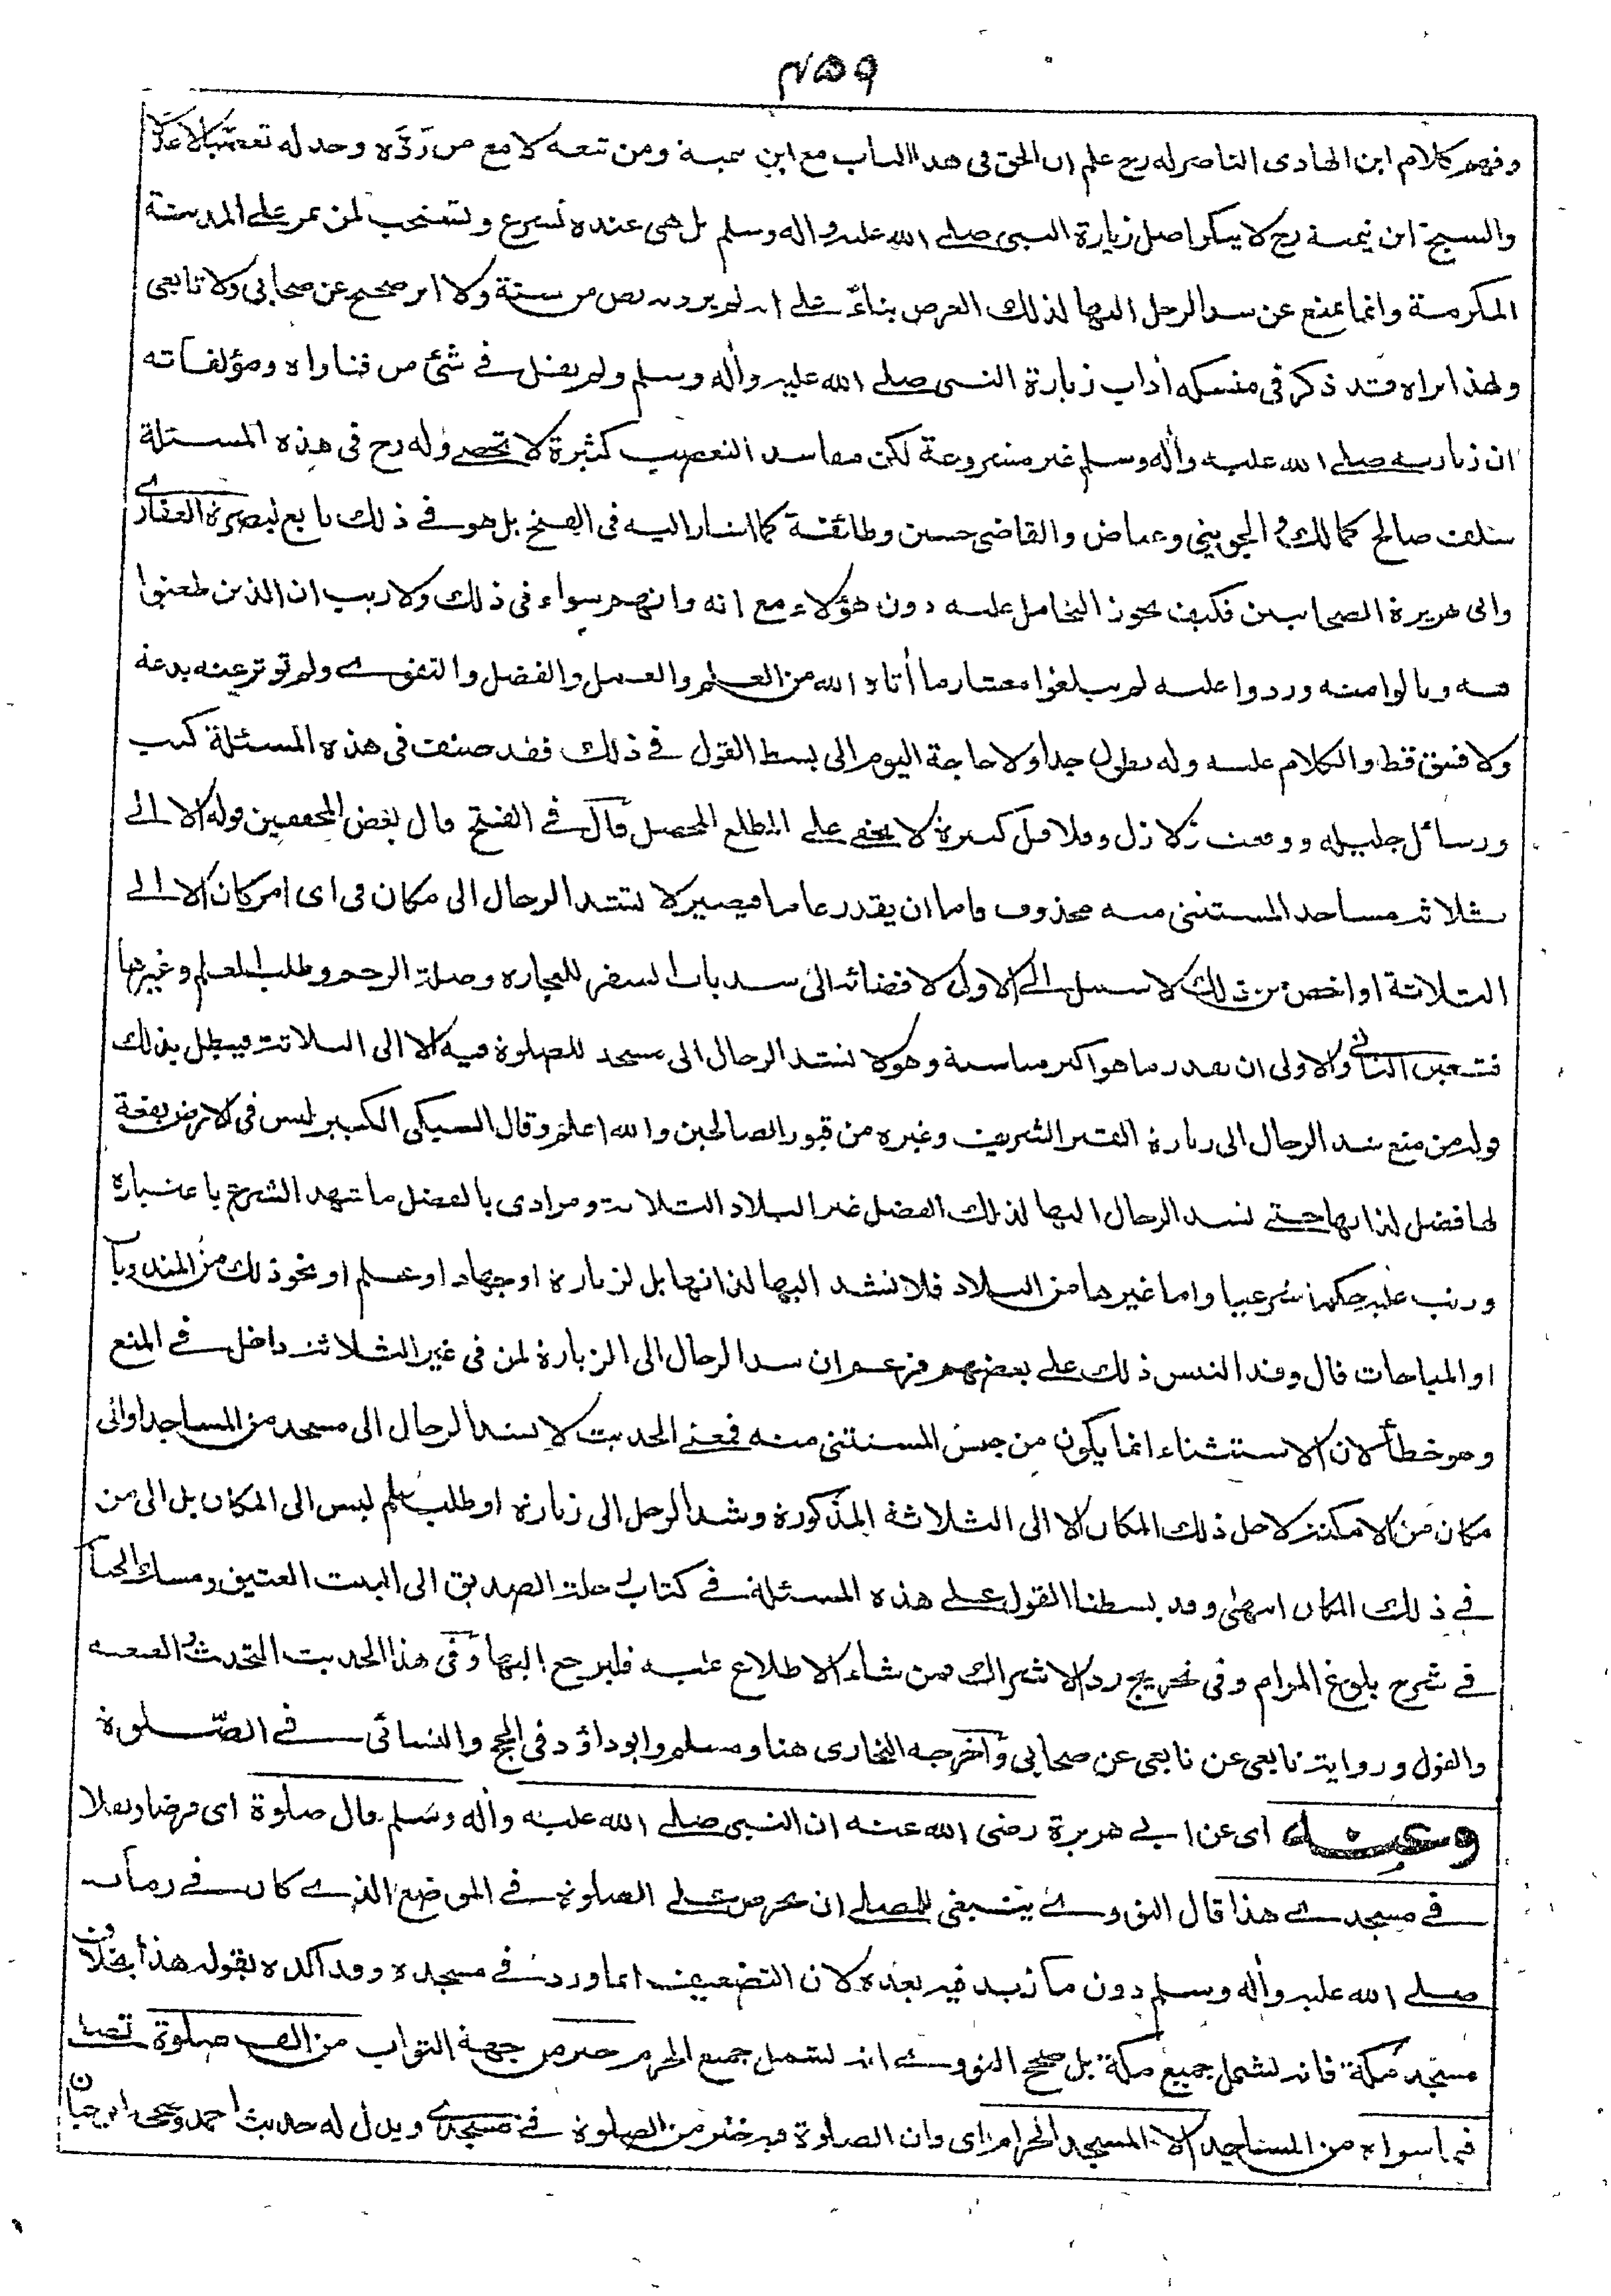 ٤٥٩
وفهم كلام ابن الهادى الناصر له رح علم ان الحق فى هذا الباب مع ابن تيمية ومن تبعه لا مع من ردّه وجدله تعصبًا لا عدلا
والشيخ ابن تيمية رح لا ينكر اصل زيارة النبى صلے الله عليه واله وسلم بل هى عنده تشرع وتستحب لمن مر علے المدينة
المكرمة وانما يمنع عن شد الرحل اليها لذلك الغرض بناءً علے انه لم يرد به نص من سنة ولا اثر صحيح عن صحابى ولا تابعى
ولهذا تراه قد ذكر فى منسكه اداب زيارة النبى صلے الله عليه وأله وسلم ولم يقل فے شئ من فتاواه ومؤلفاته
ان زيارته صلے الله عليه وأله وسلم غير مشروعة لكن مفاسد التعصب كثيرة لا تحصے وله رح فى هذه المسئلة
سلف صالح كمالك والجوينى وعياض والقاضى حسين وطائفة كما اشار اليه فى الفتح بل هو فے ذلك تابع لبصرة الغفارى
وابى هريرة الصحابيين فكيف يجوز التحامل عليه دون هؤلاء مع انه وانهم سواء فى ذلك ولا ريب ان الذين طعنوا
فيه ونالوا منه وردوا عليه لم يبلغوا معشار ما أتاه الله من العلم والعمل والفضل والتقوے ولم تؤثر عنه بدعة
ولا فسق قط والكلام عليه وله يطول جدا ولا حاجة اليوم الى بسط القول فے ذلك فقد صنفت فى هذه المسئلة كتب
ورسائل جليلة ووقعت زلازل وقلاقل كثيرة لا يخفے علے المطلع المحصل قال فے الفتح قال بعض المحققين قوله الا الے
ثلاثة مساجد المستثنى منه محذوف فاما ان يقدر عاما فيصير لا تشد الرحال الى مكان فى اى امر كان الا الے
الثلاثة او اخص من ذلك لا سبيل الے الاولى لافضائه الى سد باب السفر للتجارة وصلة الرحم وطلب العلم وغيرها
فتعين الثانى والاولى ان يقدر ما هو اكثر مناسبة وهو لا تشد الرحال الى مسجد للصلوة فيه الا الى الثلاثة فيبطل بذلك
قول من منع شد الرحال الى زيارة القبر الشريف وغيره من قبور الصالحين والله اعلم وقال السبكى الكبير ليس فى الارض بقعة
لها فضل لذاتها حتے تشد الرحال اليها لذلك الفضل غير البلاد الثلاثة ومرادى بالفضل ما شهد الشرع باعتباره
ورتب عليه حكما شرعيا واما غيرها من البلاد فلا تشد اليها لذاتها بل لزيارة او جهاد او علم او نحو ذلك من المندوبات
او المباحات قال وقد التبس ذلك علے بعضهم فزعم ان شد الرحال الى الزيارة لمن فى غير الثلاثة داخل فے المنع
وهو خطأ لان الاستثناء انما يكون من جنس المستثنى منه فمعنے الحديث لا تشد الرحال الى مسجد من المساجد او الى
مكان من الامكنة لاجل ذلك المكان الا الى الثلاثة المذكورة وشد الرحل الى زيارة او طلب علم ليس الى المكان بل الى من
فے ذلك المكان انتهى وقد بسطنا القول علے هذه المسئلة فے كتاب رحلة الصديق الى البيت العتيق ومسك الختام
فے شرح بلوغ المرام وفى تخريج رد الاشراك فمن شاء الاطلاع عليه فليرجع اليها وفى هذا الحديث التحديث والعنعنة
والقول ورواية تابعى عن تابعى عن صحابى وأخرجه البخارى هنا ومسلم وابو داؤد فى الحج والنسائى فے الصّلوة
وعنه اى عن ابے هريرة رضى الله عنه ان النبى صلے الله عليه وأله وسلم قال صلوة اى فرضا ونفلا
فے مسجدے هذا قال النووے ينبغى للمصلے ان يحرص علے الصلوة فے الموضع الذے كان فے زمانه
صلے الله عليه وأله وسلم دون ما زيد فيه بعده لان التضعيف انما ورد فے مسجده وقد اكده بقوله هذا بخلاف
مسجد مكة فانه يشمل جميع مكة بل صحح النووے انه يشمل جميع الحرم خير من جهة الثواب من الف صلوة تصلى
فيما سواه من المساجد الا المسجد الحرام اى وان الصلوة فيه خير من الصلوة فے مسجدے ويدل له حديث احمد وصححه ابن حبان